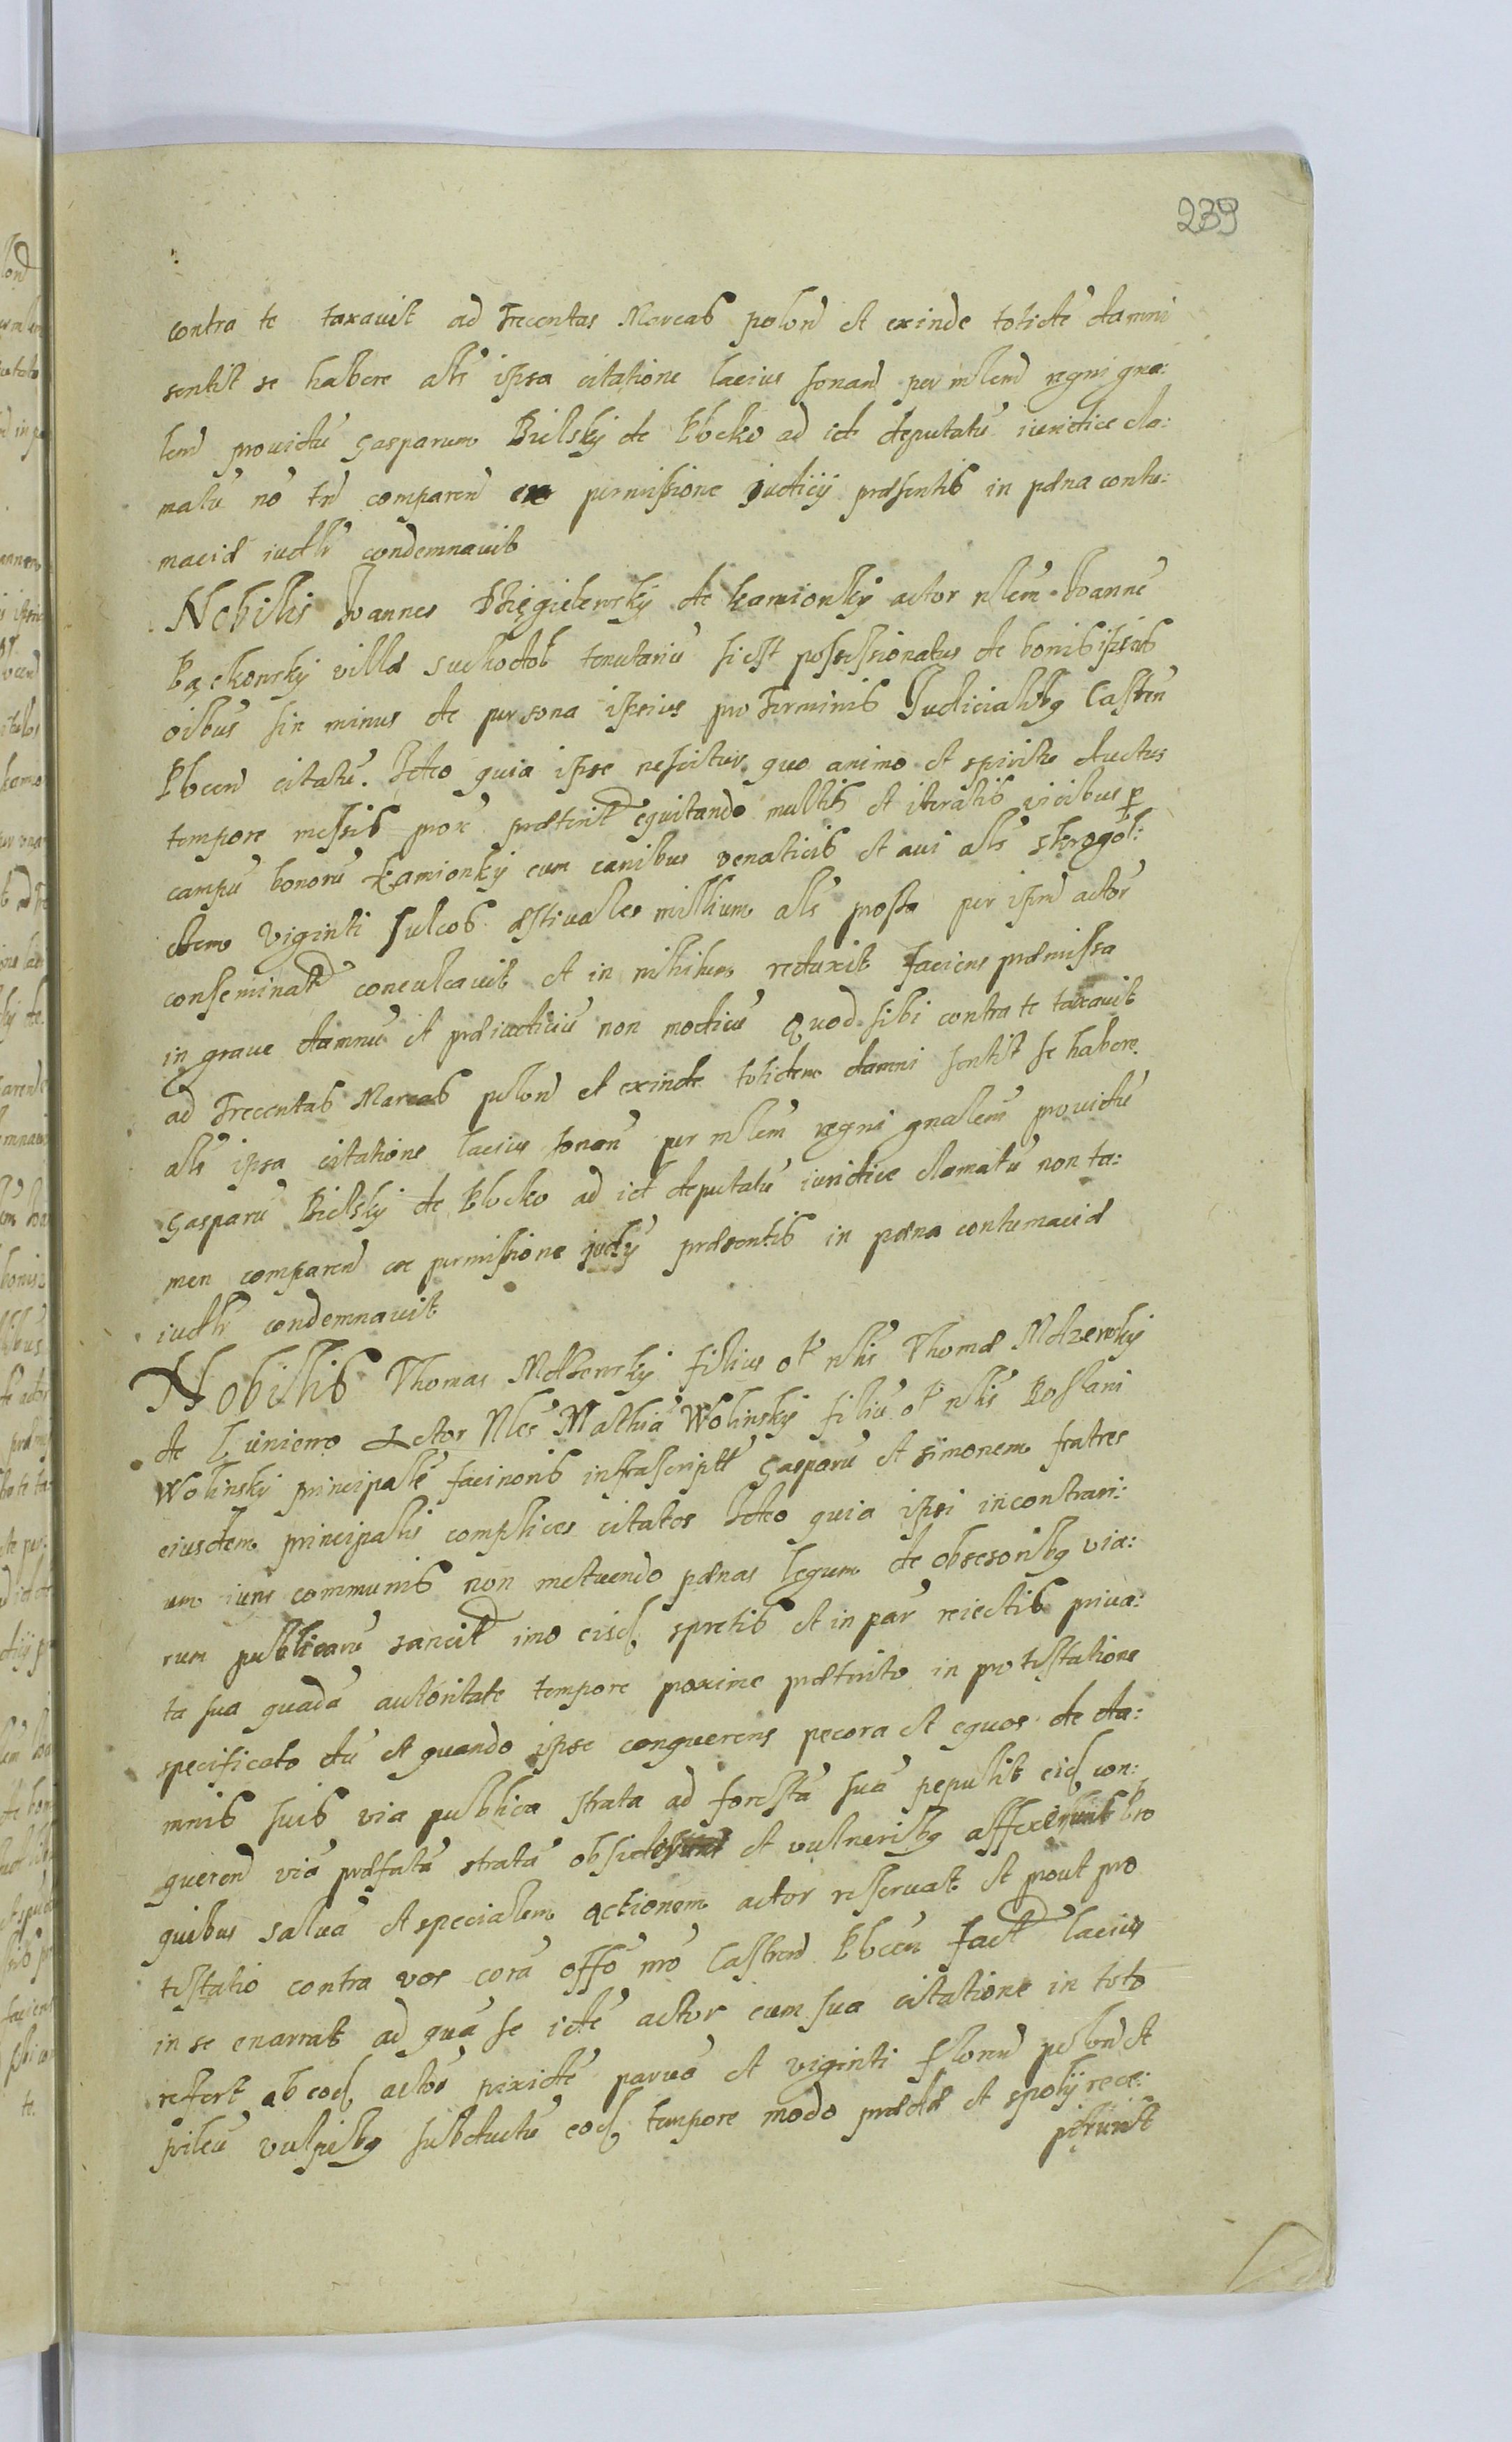 239
contra te taxavit ad Trecentas Marcas polon et exinde totidẽ damni
sentit se habere als ipsa citatione lacius sonand per mlem regni gna:
lem providũ Gasparum Bielsky de Plocko ad id deputatũ iuridice cla:
matũ nõ tñ comparen ex permissione Judicij præsentis in pæna contu:
maciæ iudlr condemnavit
Nobilis Joannes Dzięgielewsky de Kamionky actor nlem Joannẽ
Bąckowsky villæ Suchodol tenutariũ si est possessionatus de bonis ipsius
oibus sin minus de persona ipsius pro Terminis Judicialibg Castrẽn
Plocen citatũ. Ideo quia ipse nescitur quo animo et spiritu ductus
tempore messis prox præterit equitando multis et iteratis vicibus p
campũ bonorũ Kamionky cum canibus venaticis et avi als skrogol:
dem viginti sulcos æstivales millium als prossa per ipm actor
conseminat conculcavit et in nihilum reduxit faciens præmissa
in grave damnũ et præiudiciũ non modicũ Quod sibi contra te taxavit
ad Trecentas Marcas polon et exinde totidem damni sentit se habere
als ipsa citatione lacius sonan per mlem regni gnalem providũ
Gasparũ Bielsky de Plocko ad id deputatũ iuridice clamatũ non ta:
men comparen ex permissione judij præsentis in pæna contumaciæ
iudlr condemnavit
Nobilis Thomas Mdzewsky filius ol nlis Thomæ Mdzewsky
de Luniewo Actor Nles Mathiã Wolinsky filiũ ol nlis Poslani
Wolinsky principalẽ facinoris infrascript Gasparũ et Simonem fratres
eiusdem principalis complices citatos Ideo quia ipsi in contrari:
um iuris communis non metuendo pænas legum de obsesoribg via:
rum publicarũ sancit imo eisd spretis et in par reiectis priva:
ta sua quadã autoritate tempore proxime præterito in protestatione
specificato dũ et quando ipse conquerens pecora et equos de da:
mnis suis via publica strata ad forestã suã pepulit eid con:
queren viã præfatã stratã obsiderunt et vulneribg affecerunt pro
quibus salvã et specialem actionem actor reservat et prout pro
testatio contra vos corã offo nro Castren Plocen fact lacius
in se enarrat ad quã se idẽ actor cum sua citatione in toto
refert ab eod actor pixidẽ parvo et viginti floren polon et
pileũ vulpibg subductũ eod tempore modo prædæ et spolij rece:
perunt